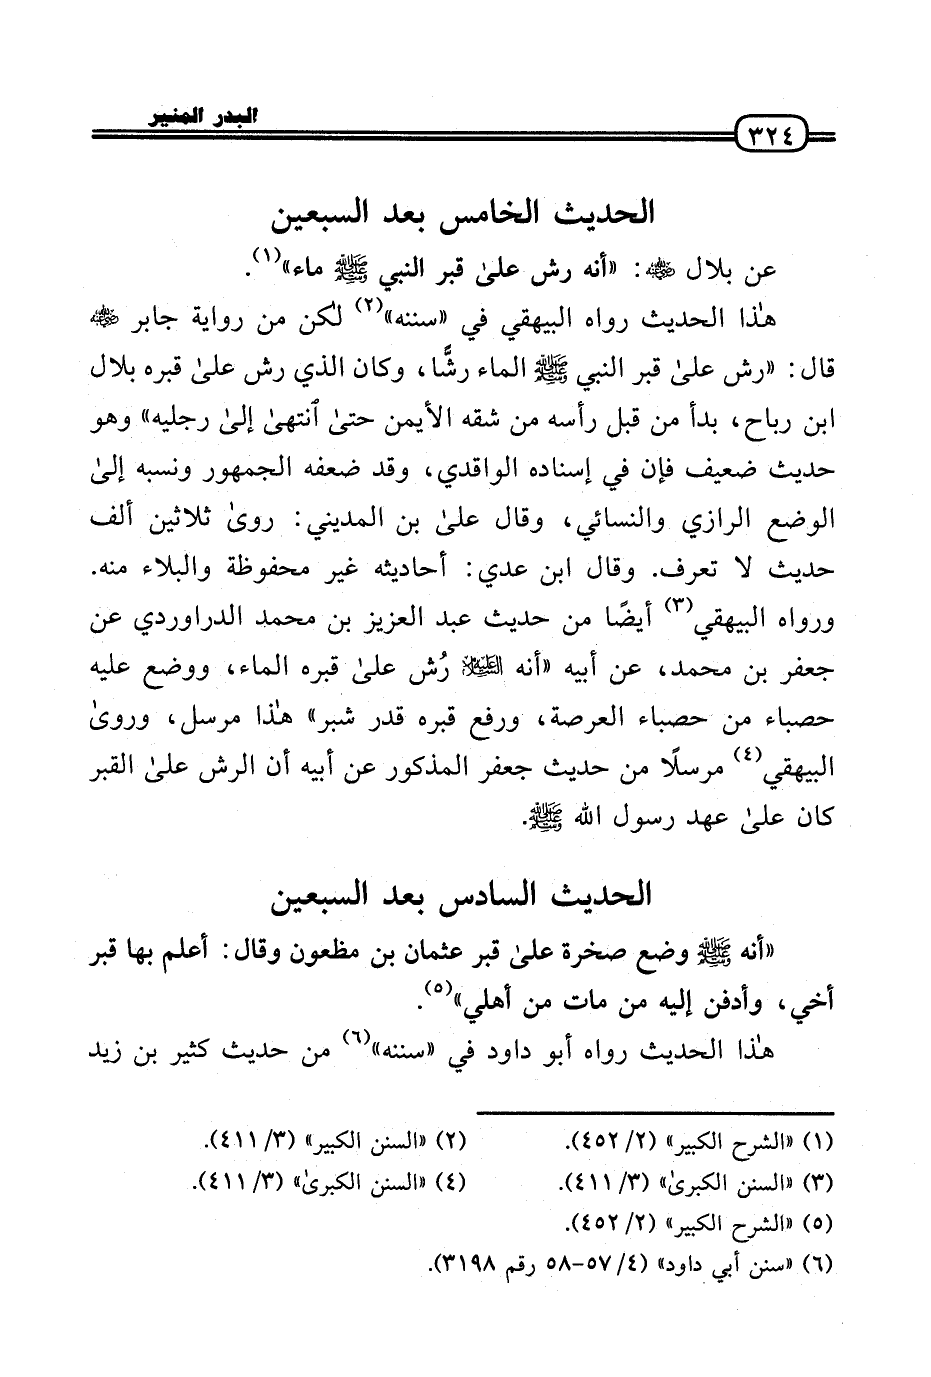 البدر المنير
٣٢٤
الحديث الخامس بعد السبعين
عن بلال رضي الله عنه: «أنه رش علىٰ قبر النبي ﷺ ماء»(١).
هٰذا الحديث رواه البيهقي في «سننه»(٢) لكن من رواية جابر رضي الله عنه
قال: «رش علىٰ قبر النبي ﷺ الماء رشًّا، وكان الذي رش علىٰ قبره بلال
ابن رباح، بدأ من قبل رأسه من شقه الأيمن حتىٰ ٱنتهىٰ إلىٰ رجليه» وهو
حديث ضعيف فإن في إسناده الواقدي، وقد ضعفه الجمهور ونسبه إلىٰ
الوضع الرازي والنسائي، وقال علىٰ بن المديني: روىٰ ثلاثين ألف
حديث لا تعرف. وقال ابن عدي: أحاديثه غير محفوظة والبلاء منه.
ورواه البيهقي(٣) أيضًا من حديث عبد العزيز بن محمد الدراوردي عن
جعفر بن محمد، عن أبيه «أنه عليه السلام رُش علىٰ قبره الماء، ووضع عليه
حصباء من حصباء العرصة، ورفع قبره قدر شبر» هٰذا مرسل، وروىٰ
البيهقي(٤) مرسلًا من حديث جعفر المذكور عن أبيه أن الرش علىٰ القبر
كان علىٰ عهد رسول الله ﷺ.
الحديث السادس بعد السبعين
«أنه ﷺ وضع صخرة علىٰ قبر عثمان بن مظعون وقال: أعلم بها قبر
أخي، وأدفن إليه من مات من أهلي»(٥).
هٰذا الحديث رواه أبو داود في «سننه»(٦) من حديث كثير بن زيد
(١) «الشرح الكبير» (٢/ ٤٥٢). (٢) «السنن الكبير» (٣/ ٤١١).
(٣) «السنن الكبرىٰ» (٣/ ٤١١). (٤) «السنن الكبرىٰ» (٣/ ٤١١).
(٥) «الشرح الكبير» (٢/ ٤٥٢).
(٦) «سنن أبي داود» (٤/ ٥٧-٥٨ رقم ٣١٩٨).